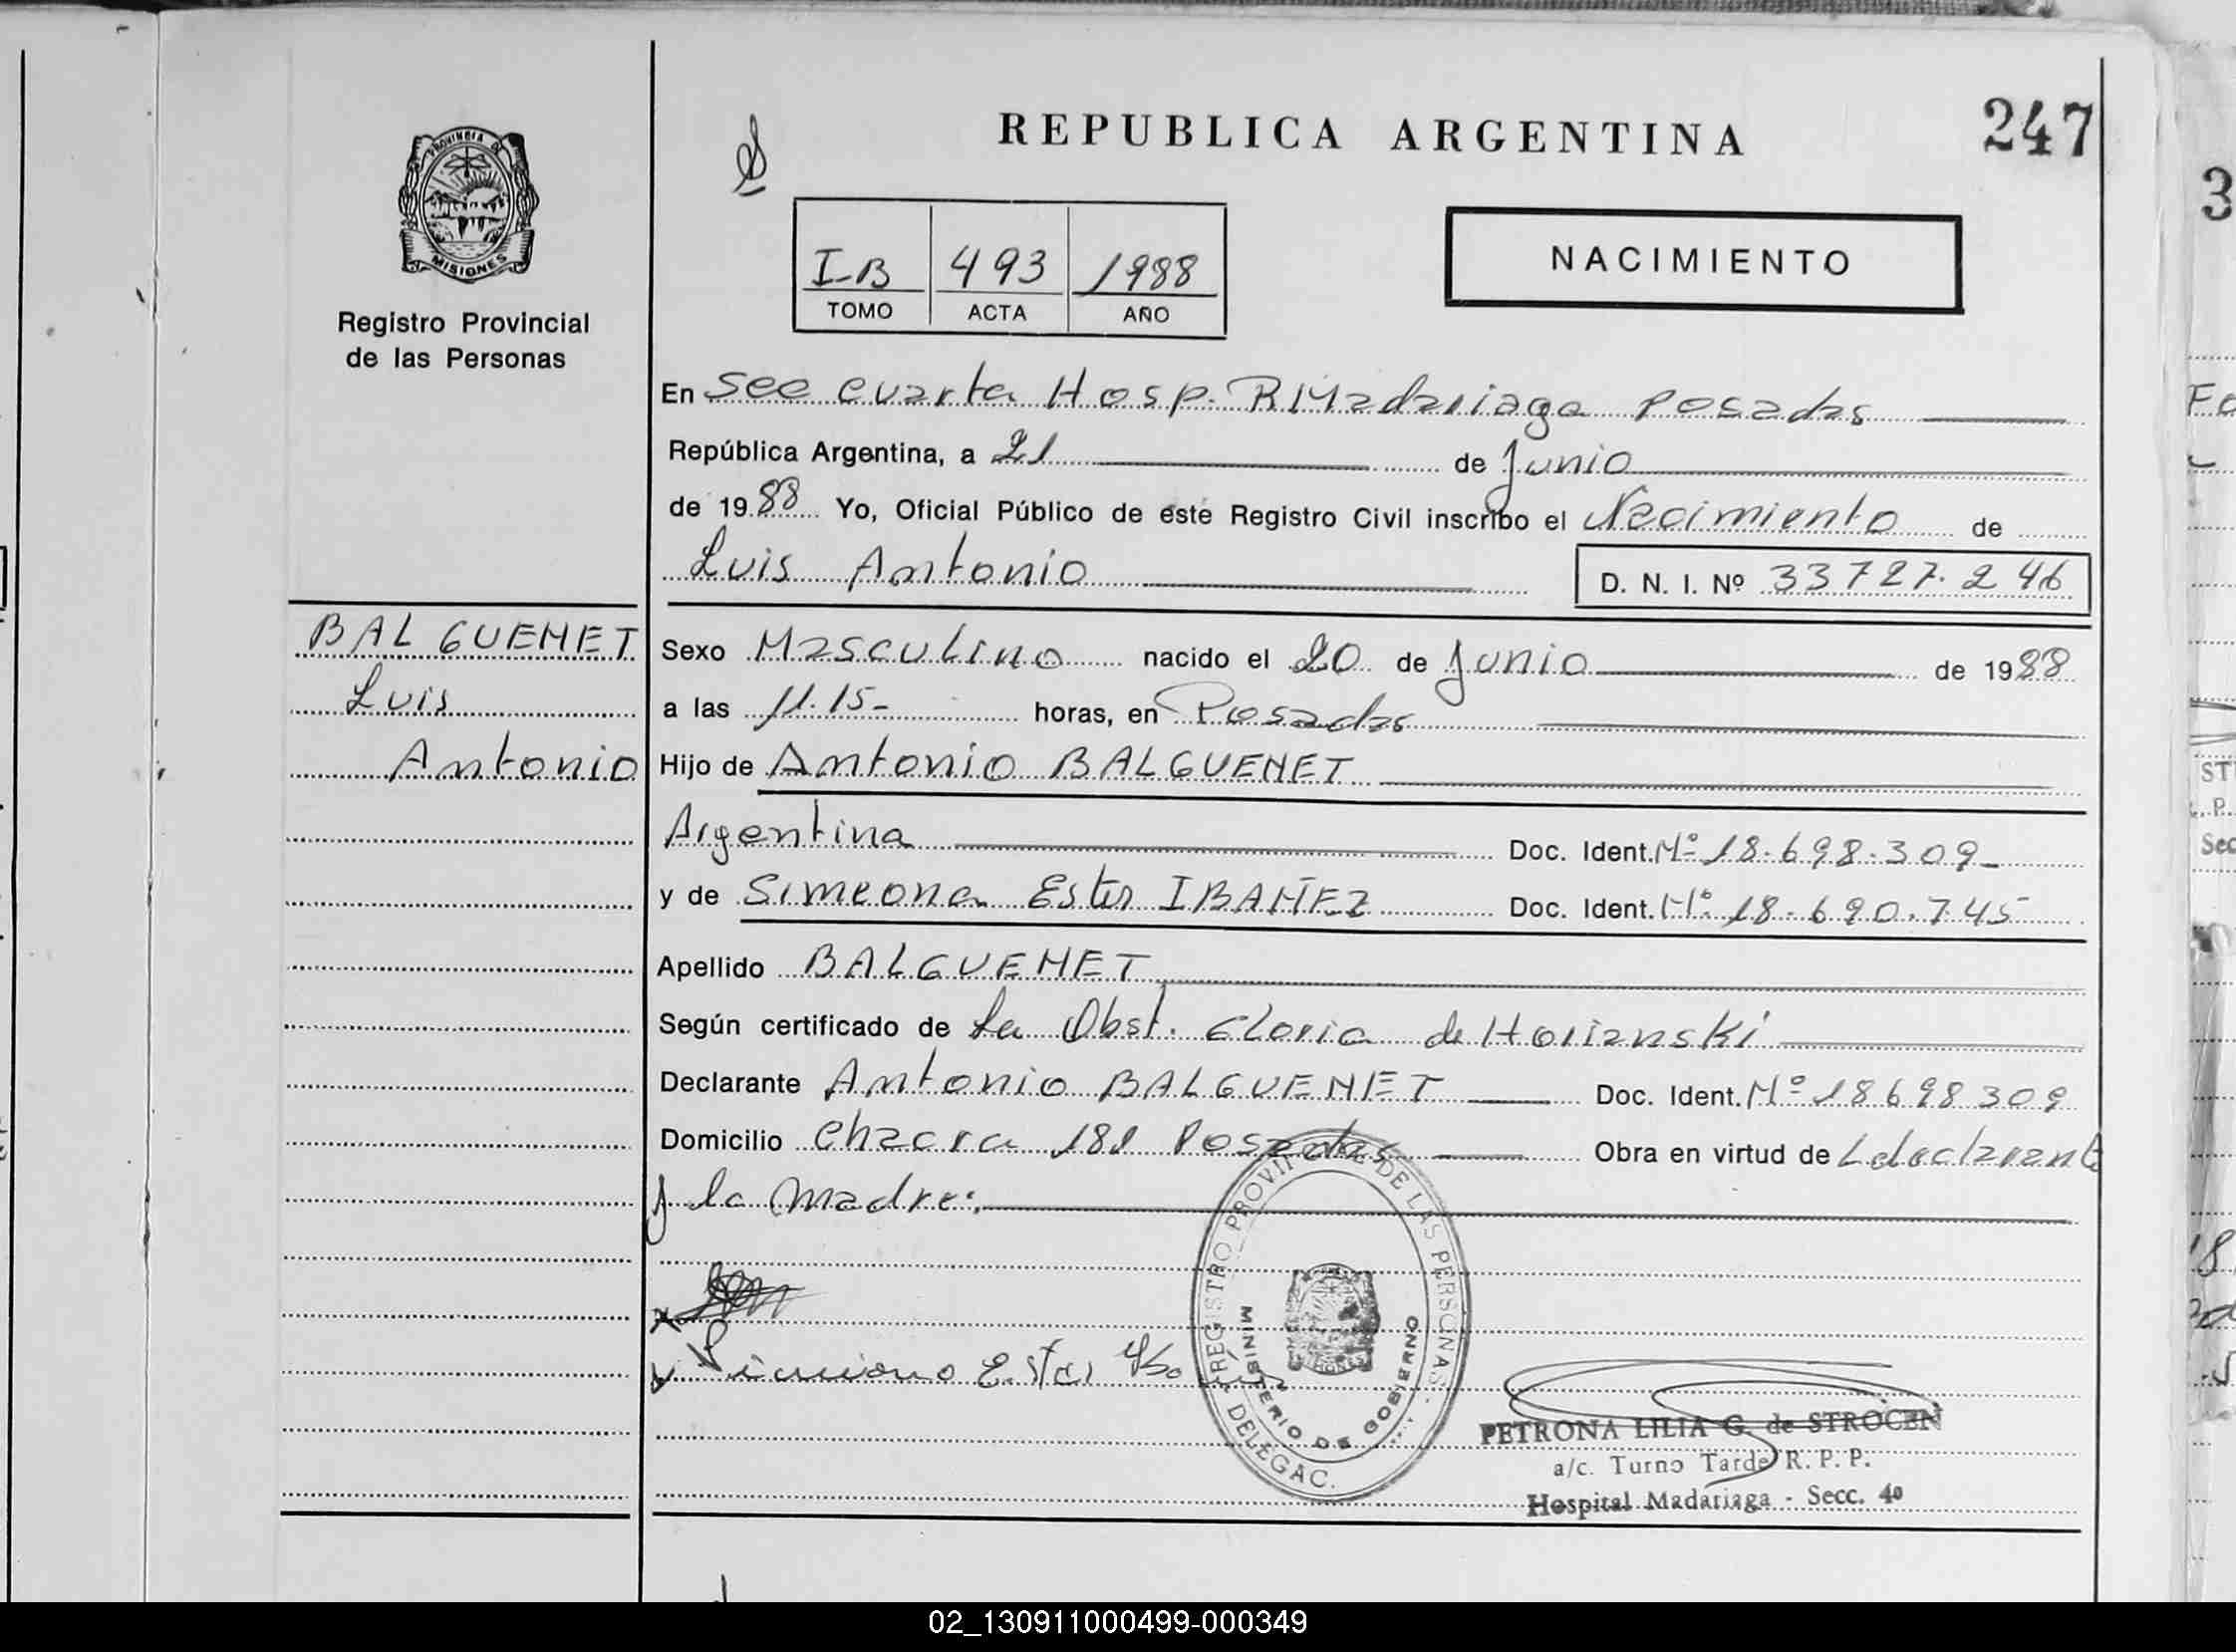 REPUBLICA ARGENTINA
247
PROVINCIA DE
MISIONES
Registro Provincial
de las Personas
I-B 493 1988
TOMO ACTA AÑO
NACIMIENTO
En Sec cuarta Hosp. R Madariaga Posadas
República Argentina, a 21 de Junio
de 1988 Yo, Oficial Público de este Registro Civil inscribo el Nacimiento de
Luis Antonio D. N. I. Nº 33727.246
BALGUENET
Luis
Antonio
Sexo Masculino nacido el 20 de Junio de 1988
a las 11.15- horas, en Posadas
Hijo de Antonio BALGUENET
Argentina Doc. Ident. Nº 18.698.309-
y de Simeona Ester IBAÑEZ Doc. Ident. Nº 18.690.745
Apellido BALGUENET
Según certificado de La Obst. Gloria de Horianski
Declarante Antonio BALGUENET Doc. Ident. Nº 18698309
Domicilio Chacra 181 Posadas Obra en virtud de L declarante
y la Madre:
REGISTRO PROVINCIAL DE LAS PERSONAS
MINISTERIO DE GOBIERNO
DELEGAC.
PETRONA LILIA G. de STROCEN
a/c. Turno Tarde R. P. P.
Hospital Madariaga - Secc. 4a
02_130911000499-000349